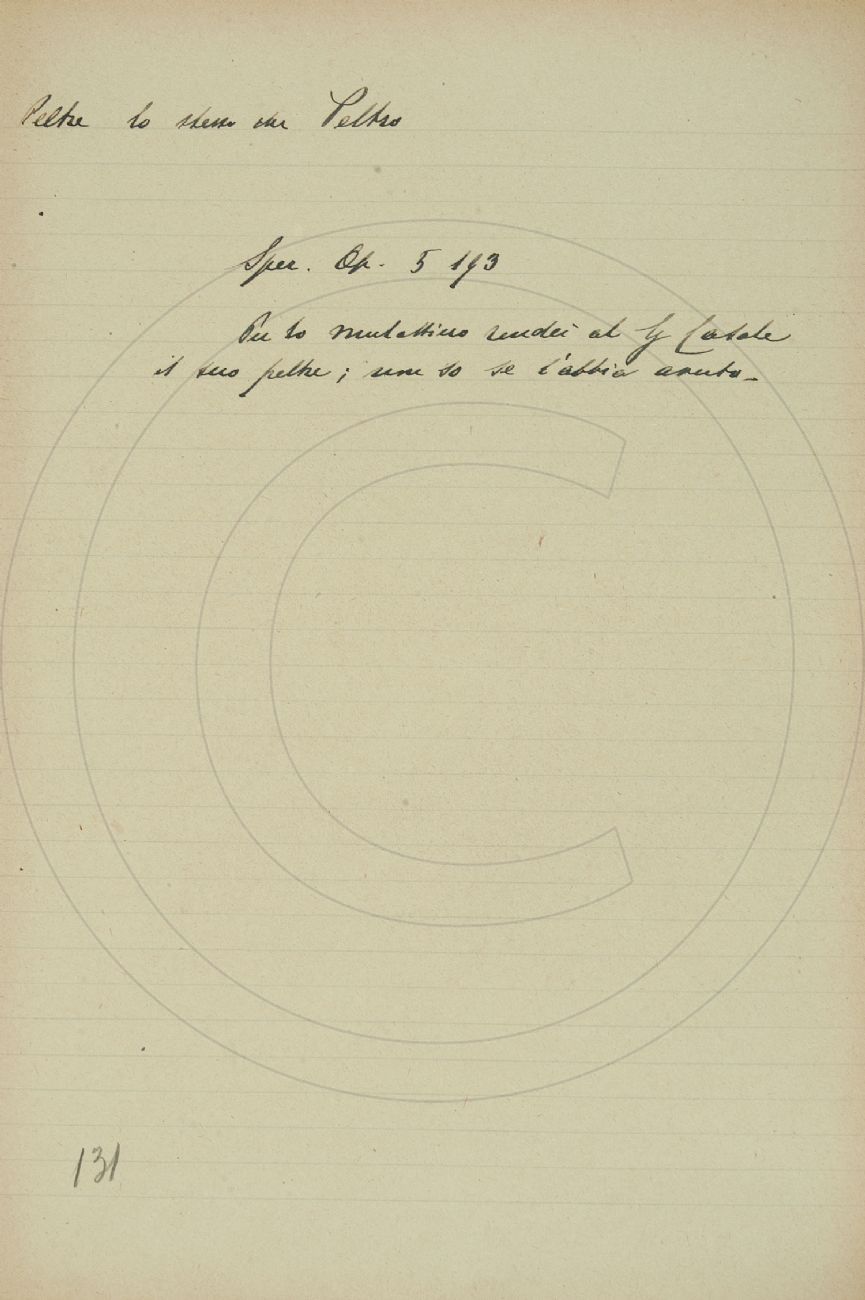 Peltre lo stesso che Peltro
Sper. Op. 5 193
Per lo mulattiero rendei al Sg Casale
il suo peltre; non so se l'abbia avuto_
131